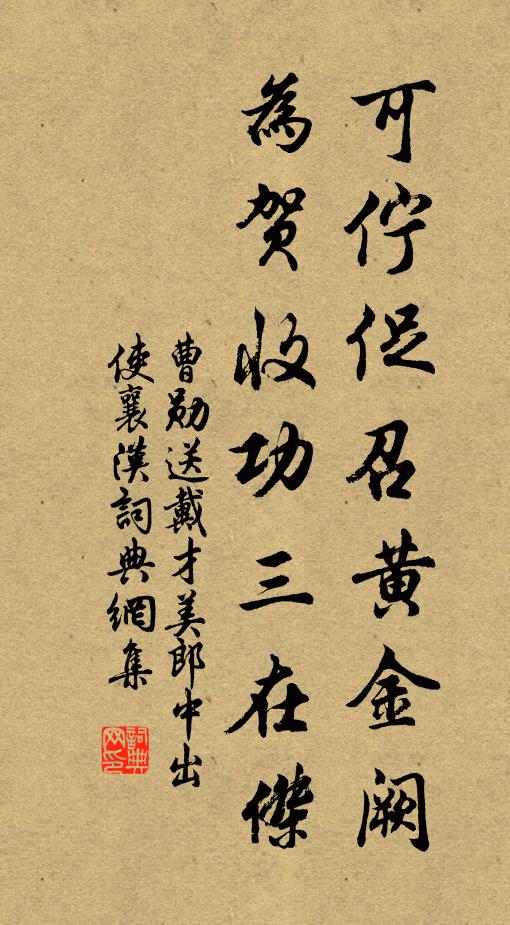 可佇促召黄金阙
為贺收功三在傑
曹勋送戴才美郎中出
使襄漢詞典網集
詞典
网印